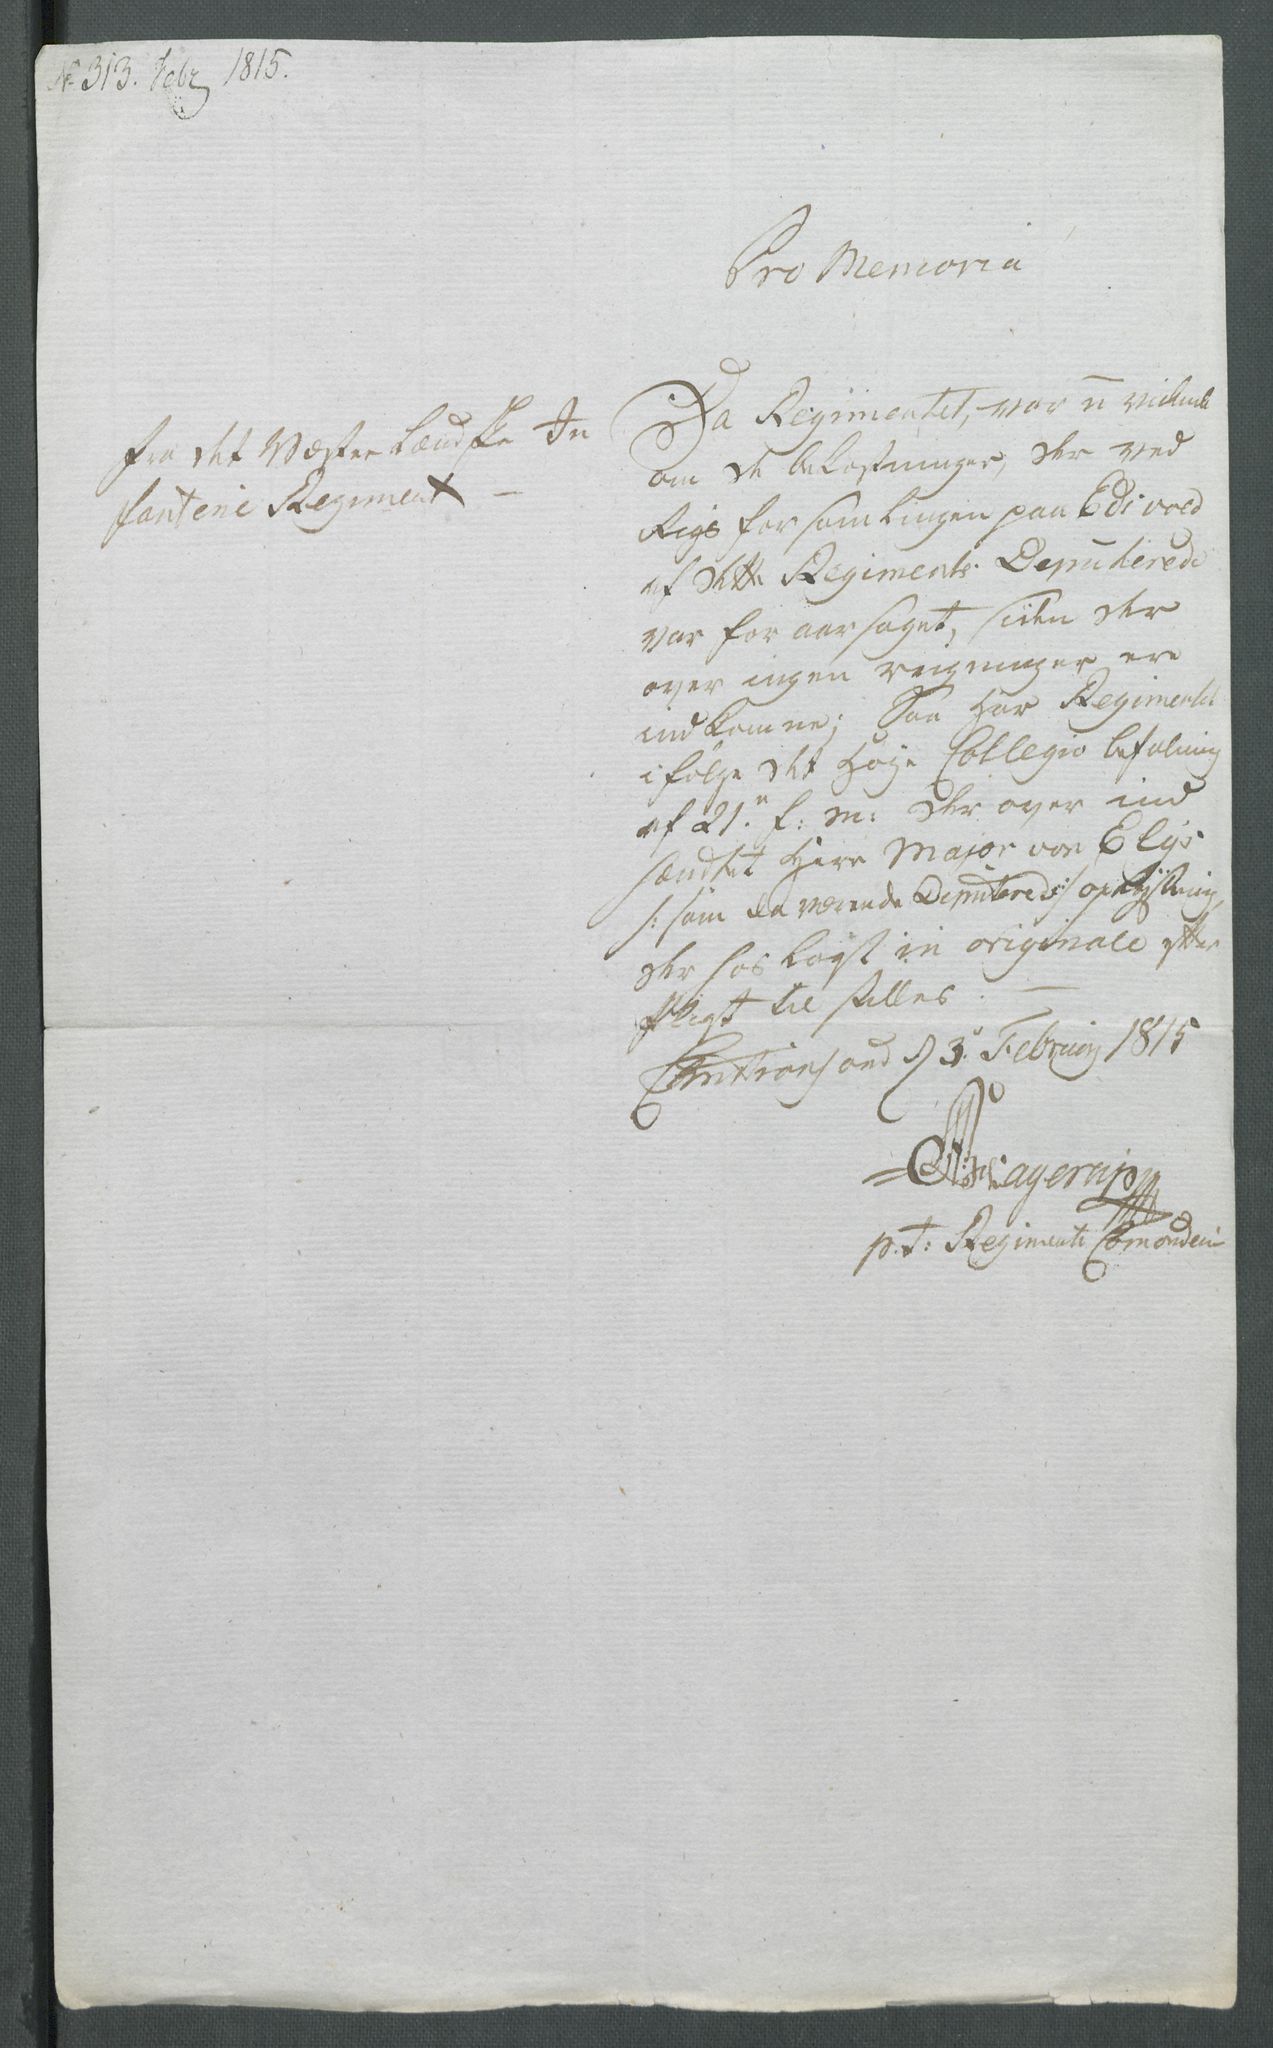 № 313. Febr 1815.
Pro Memoria
fra det Vester Landske In
fanterie Regiment —
Da Regimentet, var u vidende
om de bekostninger, der ved
Rigs forsamlingen paa Edsvold
af dette Regiments Deputerede
var for aarsaget, siden der
over ingen reigninger ere
indkomne; Saa har Regimentet
ifølge det Høye Collegio befaling
af 21.n f: m: der over ind
hændtet Herr Major von Elys
/: som da værende Deputered :/ oplysning,
der hos lagt in originale
til stilles. —
Christiansand d 3. Februarij 1815
p. t: Regiments Comandeur